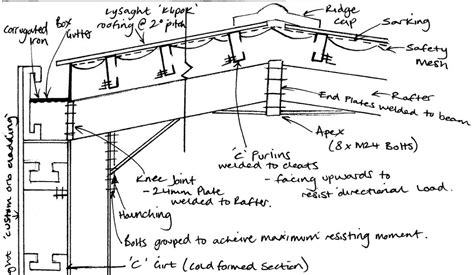 Lysaght 'Klipok'
roofing @ 2° pitch
Ridge
Cap
Sarking
Safety
mesh
Box
Gutter
Corrugated
iron
Rafter
End Plates welded to beam
Apex
(8 x M24 Bolts)
'C' Purlins
welded to cleats
- facing upwards to
resist directional load.
Knee Joint
- 24mm Plate
welded to Rafter.
Haunching
Bolts grouped to achieve maximum resisting moment.
'C' Girt (cold formed Section)
'custom orb cladding'